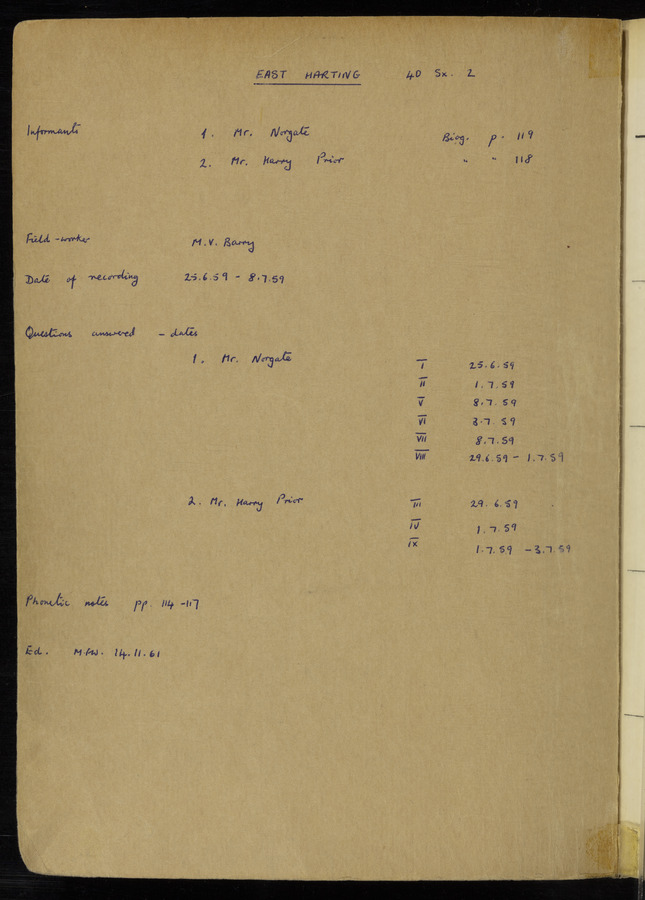 EAST HARTING 40 Sx. 2
Informants 1. Mr. Norgate Biog. p. 119
2. Mr. Harry Prior " " 118
Field-worker M.V. Barry
Date of recording 25.6.59 - 8.7.59
Questions answered - dates
1. Mr. Norgate I 25.6.59
II 1.7.59
V 8.7.59
VI 3.7.59
VII 8.7.59
VIII 29.6.59 - 1.7.59
2. Mr. Harry Prior III 29.6.59
IV 1.7.59
IX 1.7.59 - 3.7.59
Phonetic notes pp. 114-117
Ed. 14.11.61